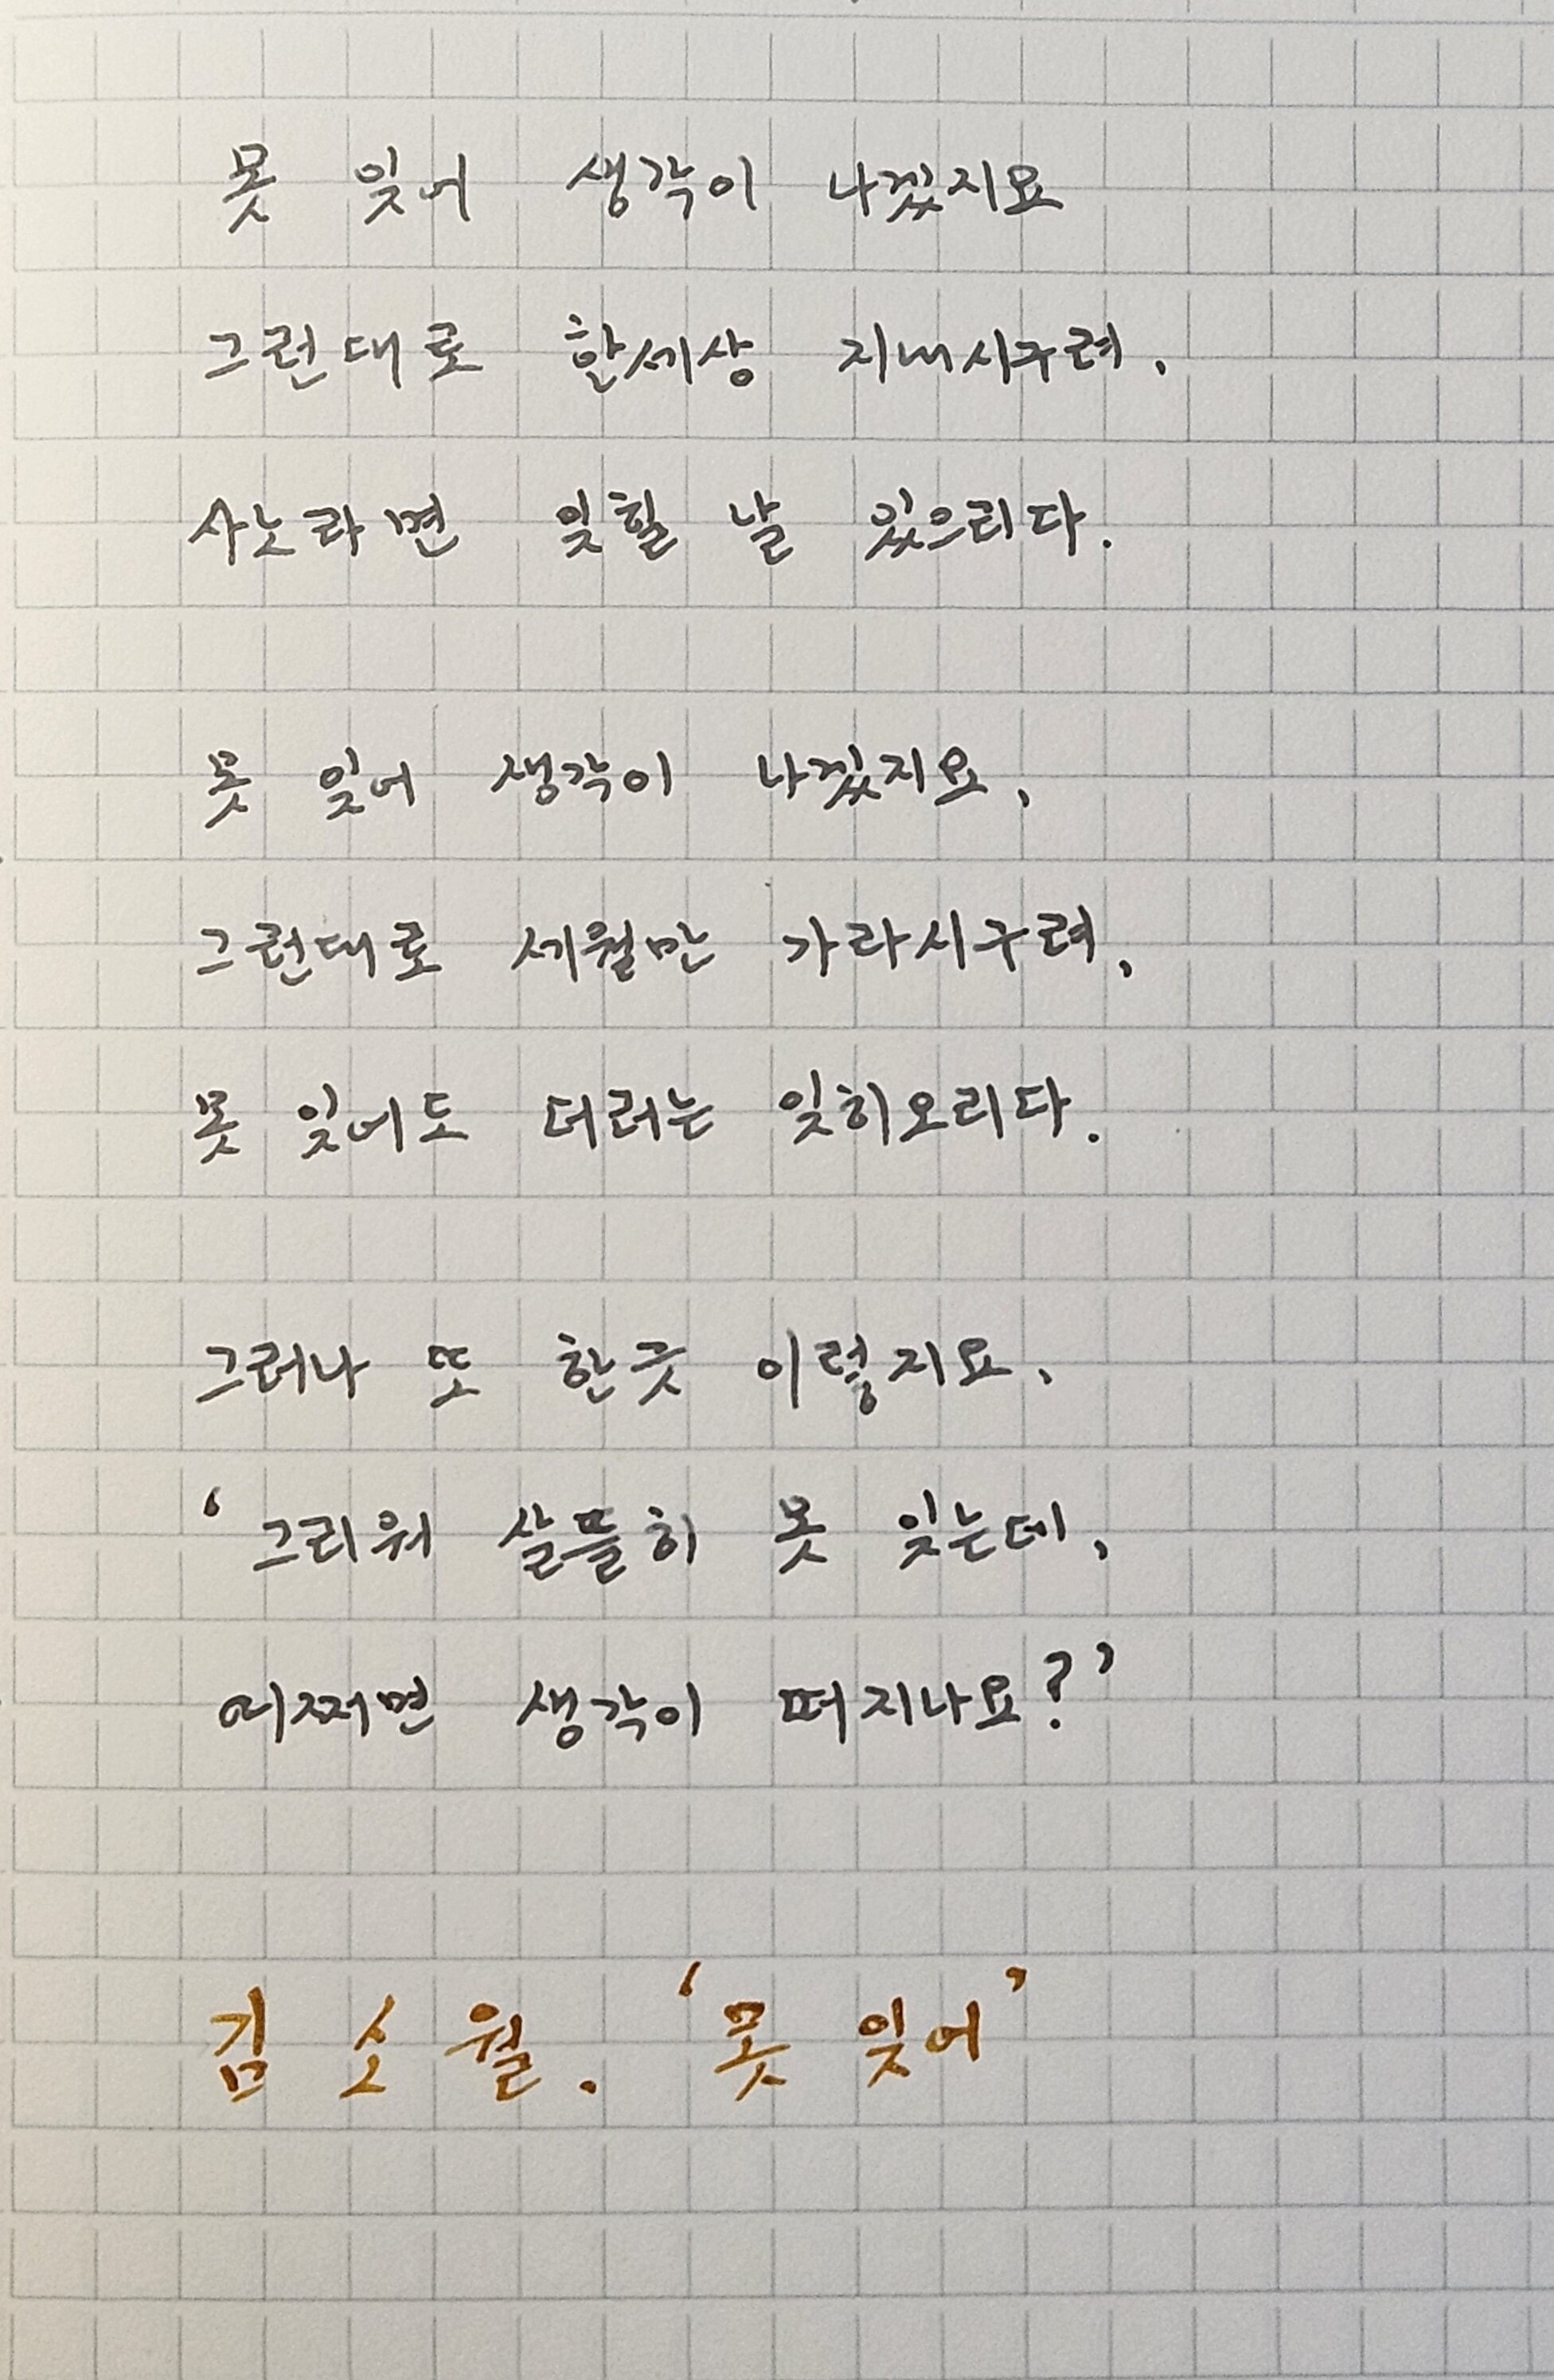 못 잊어 생각이 나겠지요
그런대로 한세상 지내시구려,
사노라면 잊힐 날 있으리다.
못 잊어 생각이 나겠지요,
그런대로 세월만 가라시구려,
못 잊어도 더러는 잊히오리다.
그러나 또 한긋 이렇지요,
‘그리워 살뜰히 못 잊는데,
어쩌면 생각이 떠지나요?’
김소월. ‘못 잊어’